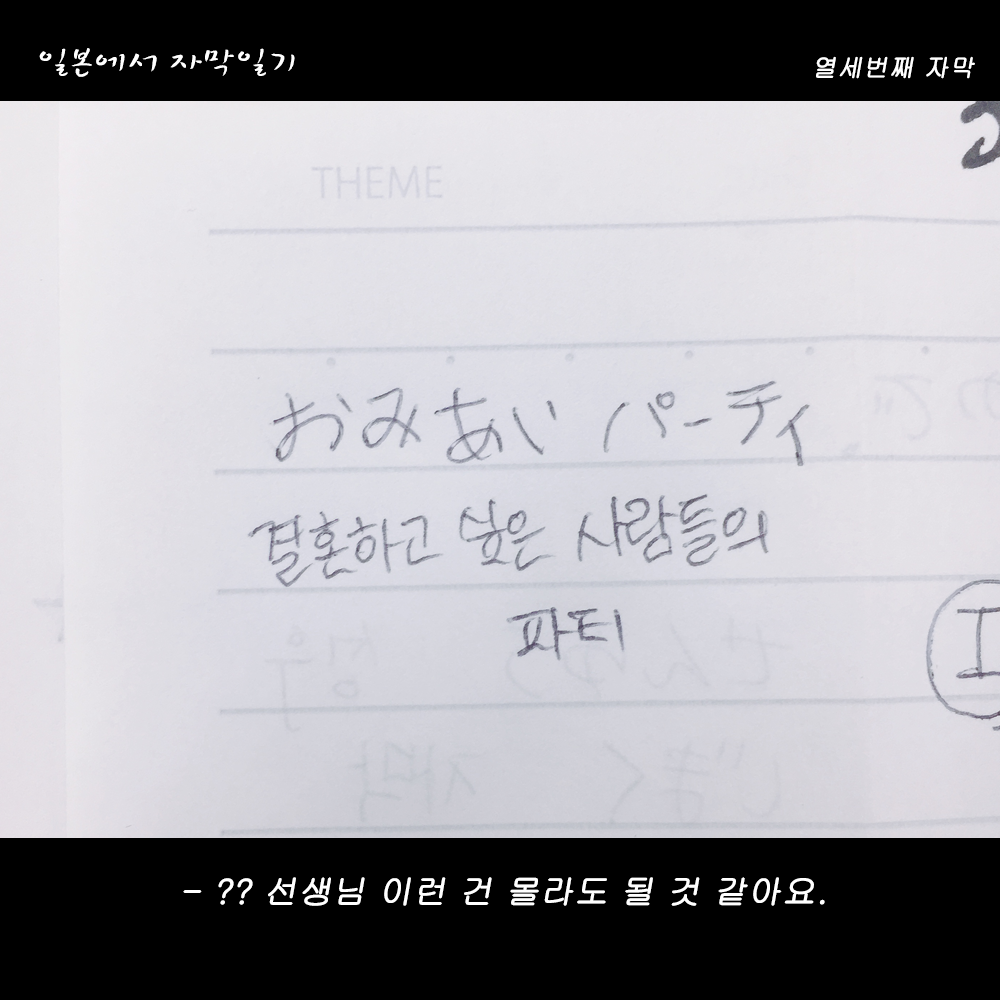 일본에서 자막일기
열세번째 자막
THEME
おみあい パーティ
결혼하고 싶은 사람들의
파티
- ?? 선생님 이런 건 몰라도 될 것 같아요.